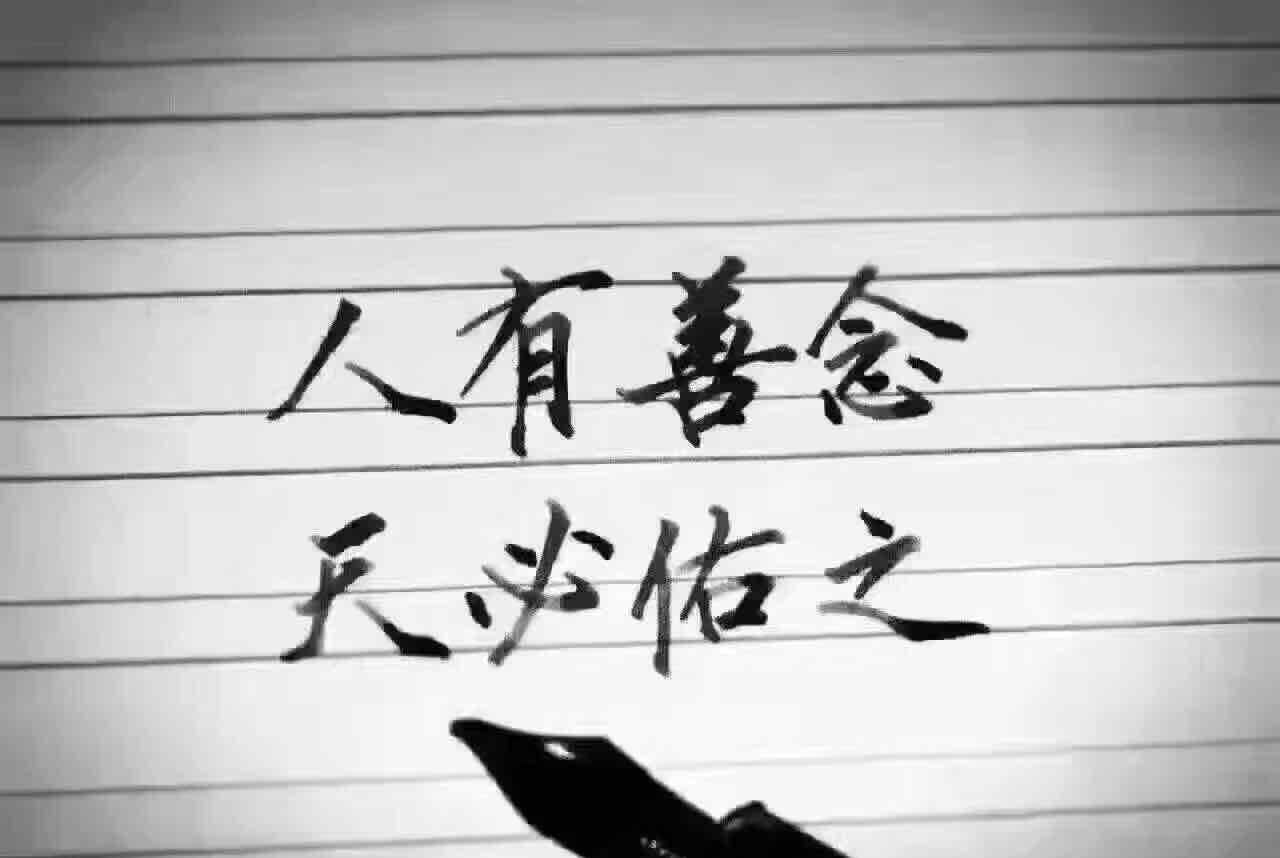 人有善念
天必佑之